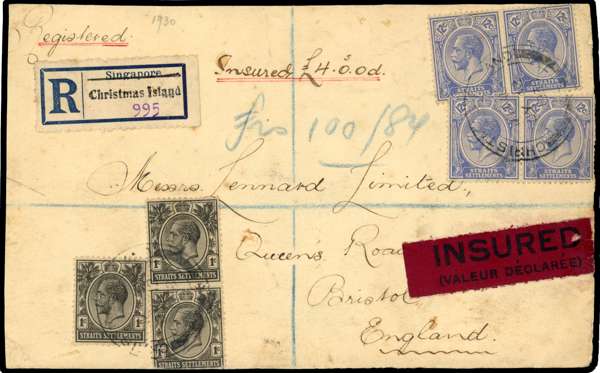 1930
Registered.
Insured. £4.0.0d.
R
Singapore
Christmas Island
995
frs 100/84
Messrs Lennard Limited,
Queen's Road
Bristol
England.
INSURED
(VALEUR DÉCLARÉE)
12c 12c
STRAITS SETTLEMENTS
STRAITS SETTLEMENTS
12c 12c
STRAITS SETTLEMENTS
STRAITS SETTLEMENTS
1c 1c
STRAITS SETTLEMENTS
1c 1c
STRAITS SETTLEMENTS
1c 1c
STRAITS SETTLEMENTS